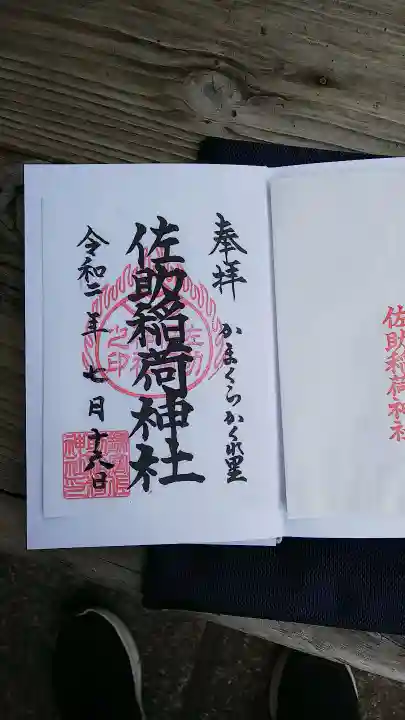 奉拝
かまくらかくれ里
佐助稲荷神社
令和二年七月十六日
佐助稲荷神社